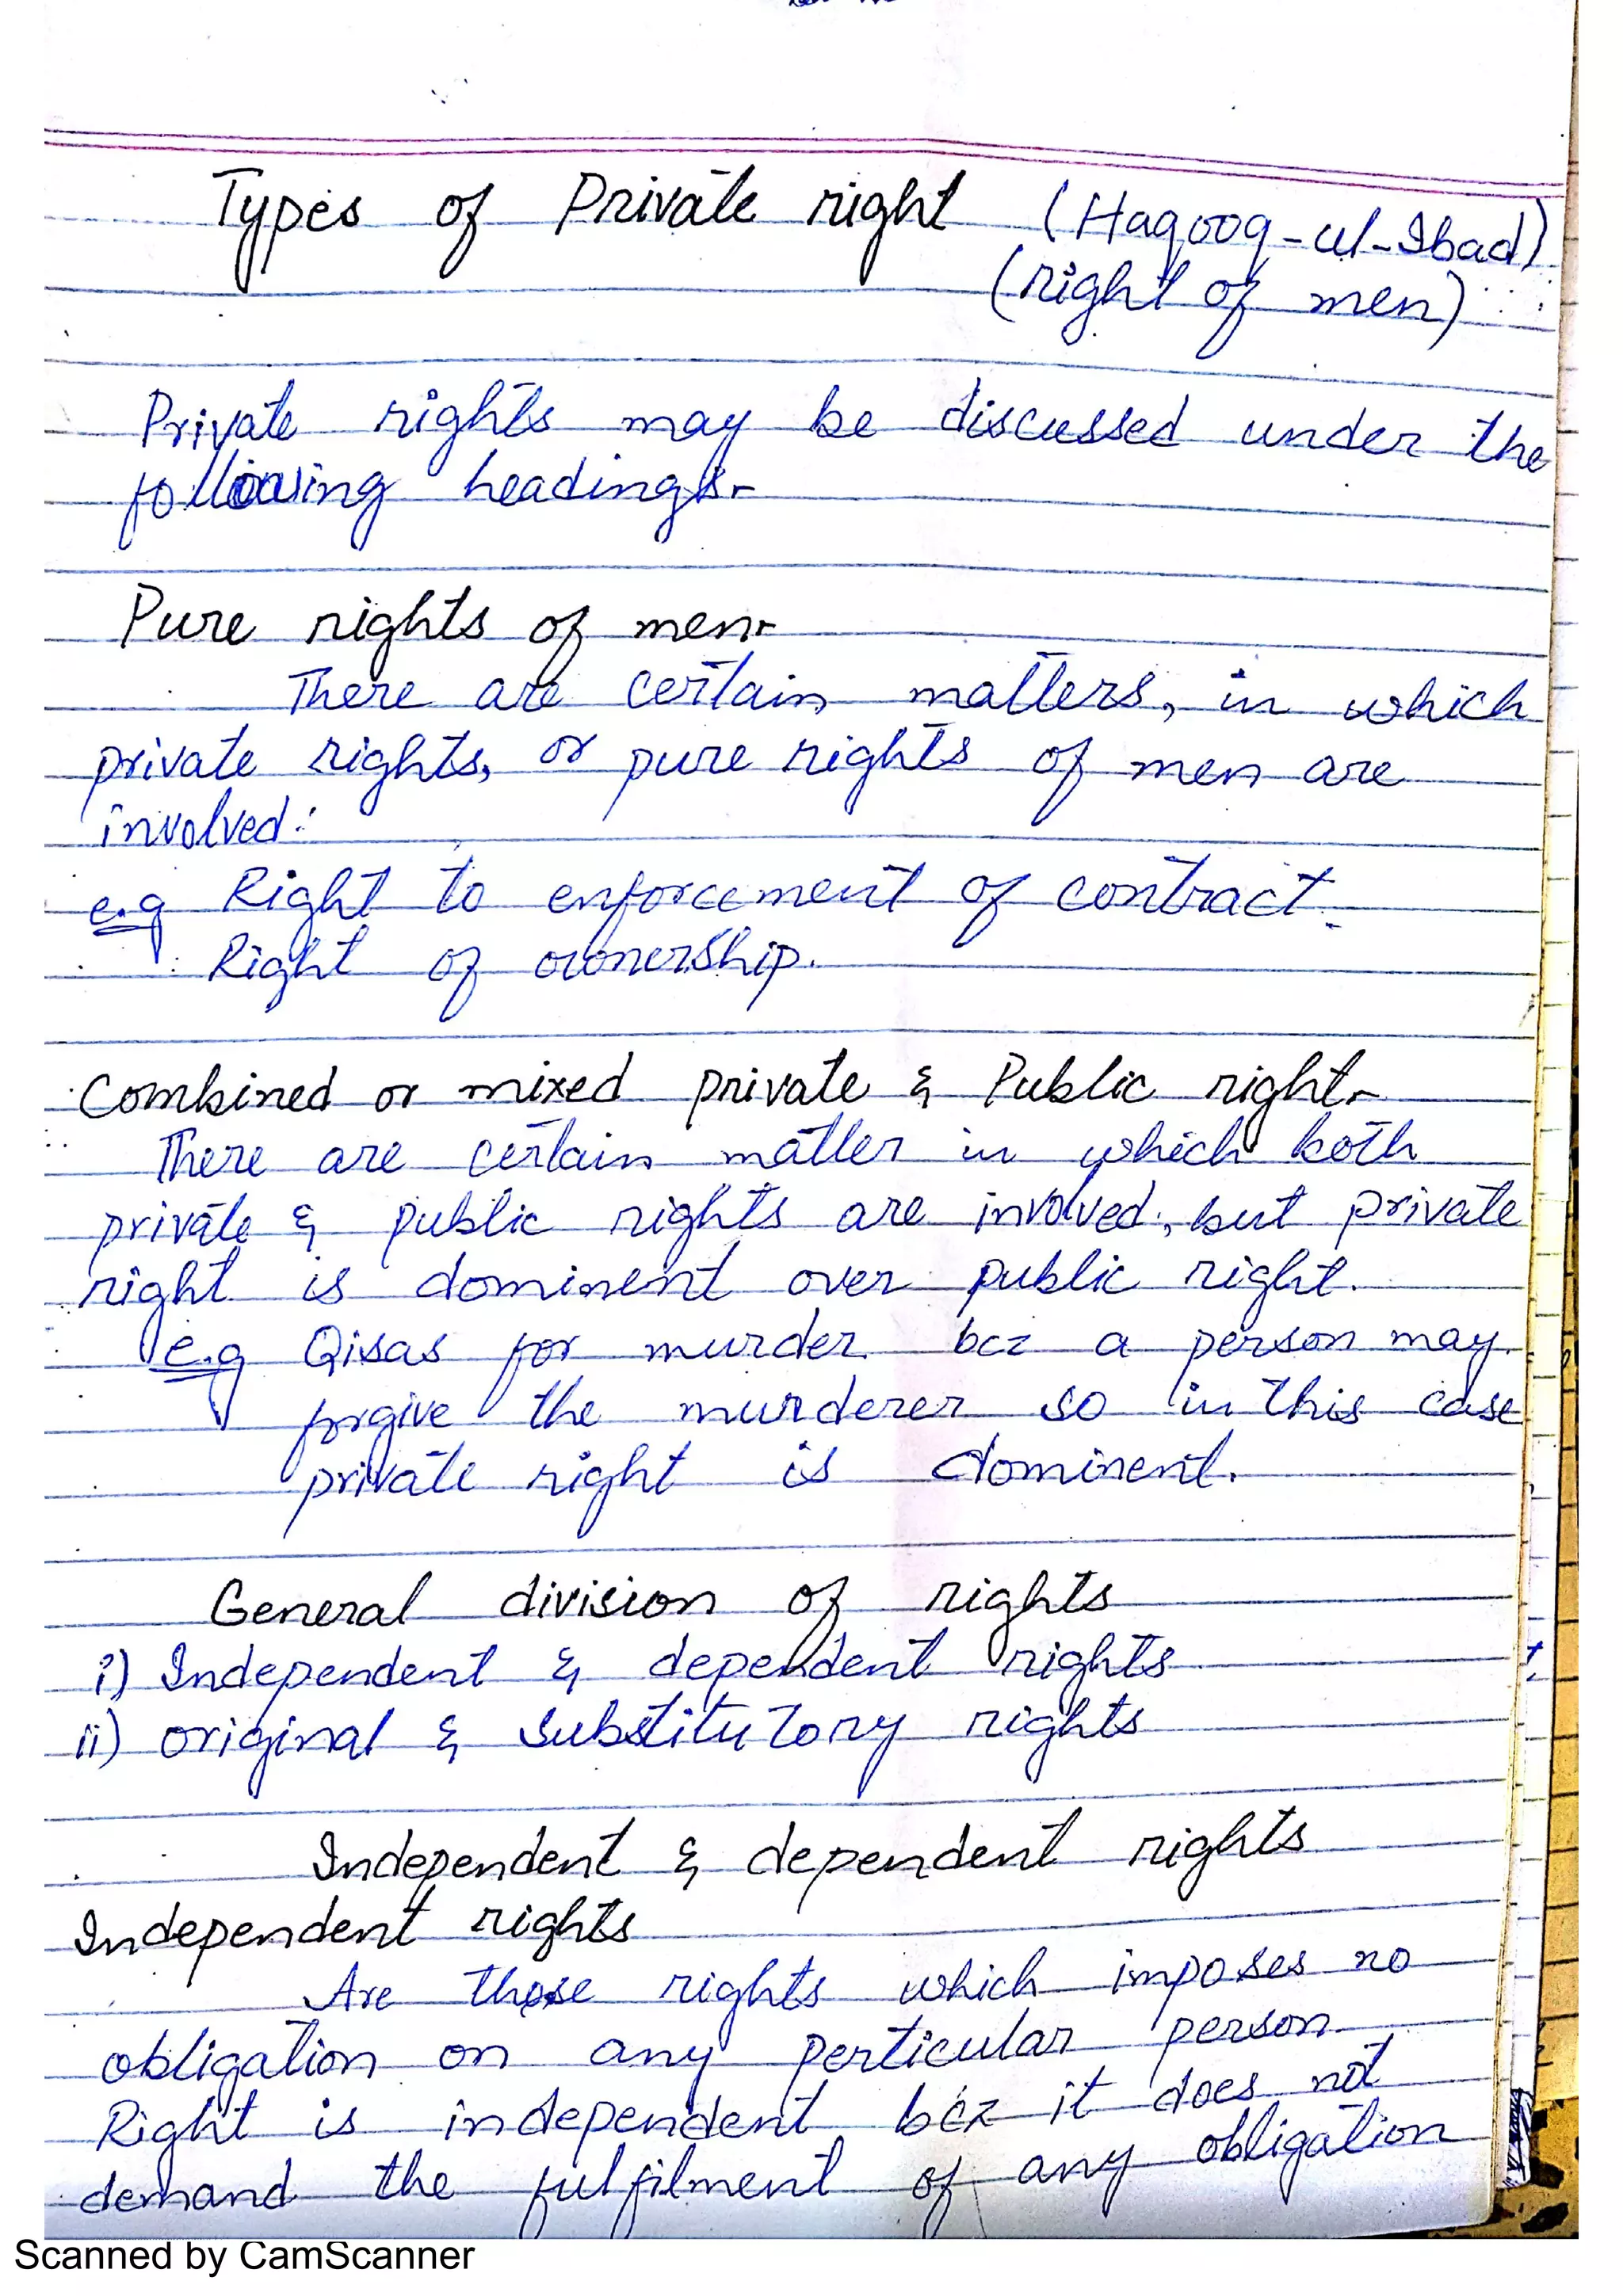 Types of Private right (Haqooq-ul-Ibad)
(right of men)
Private rights may be discussed under the
following headings-
Pure rights of men-
There are certain matters, in which
private rights, or pure rights of men are
involved:
e.g Right to enforcement of contract.
Right of ownership.
Combined or mixed private & Public right-
There are certain matter in which both
private & public rights are involved, but private
right is dominent over public right.
e.g Qisas for murder bcz a person may
forgive the murderer so in this case
private right is dominent.
General division of rights
i) Independent & dependent rights
ii) original & Substitutory rights
Independent & dependent rights
Independent rights
Are those rights which imposes no
obligation on any perticular person
Right is independent bcz it does not
demand the fulfilment of any obligation
Scanned by CamScanner